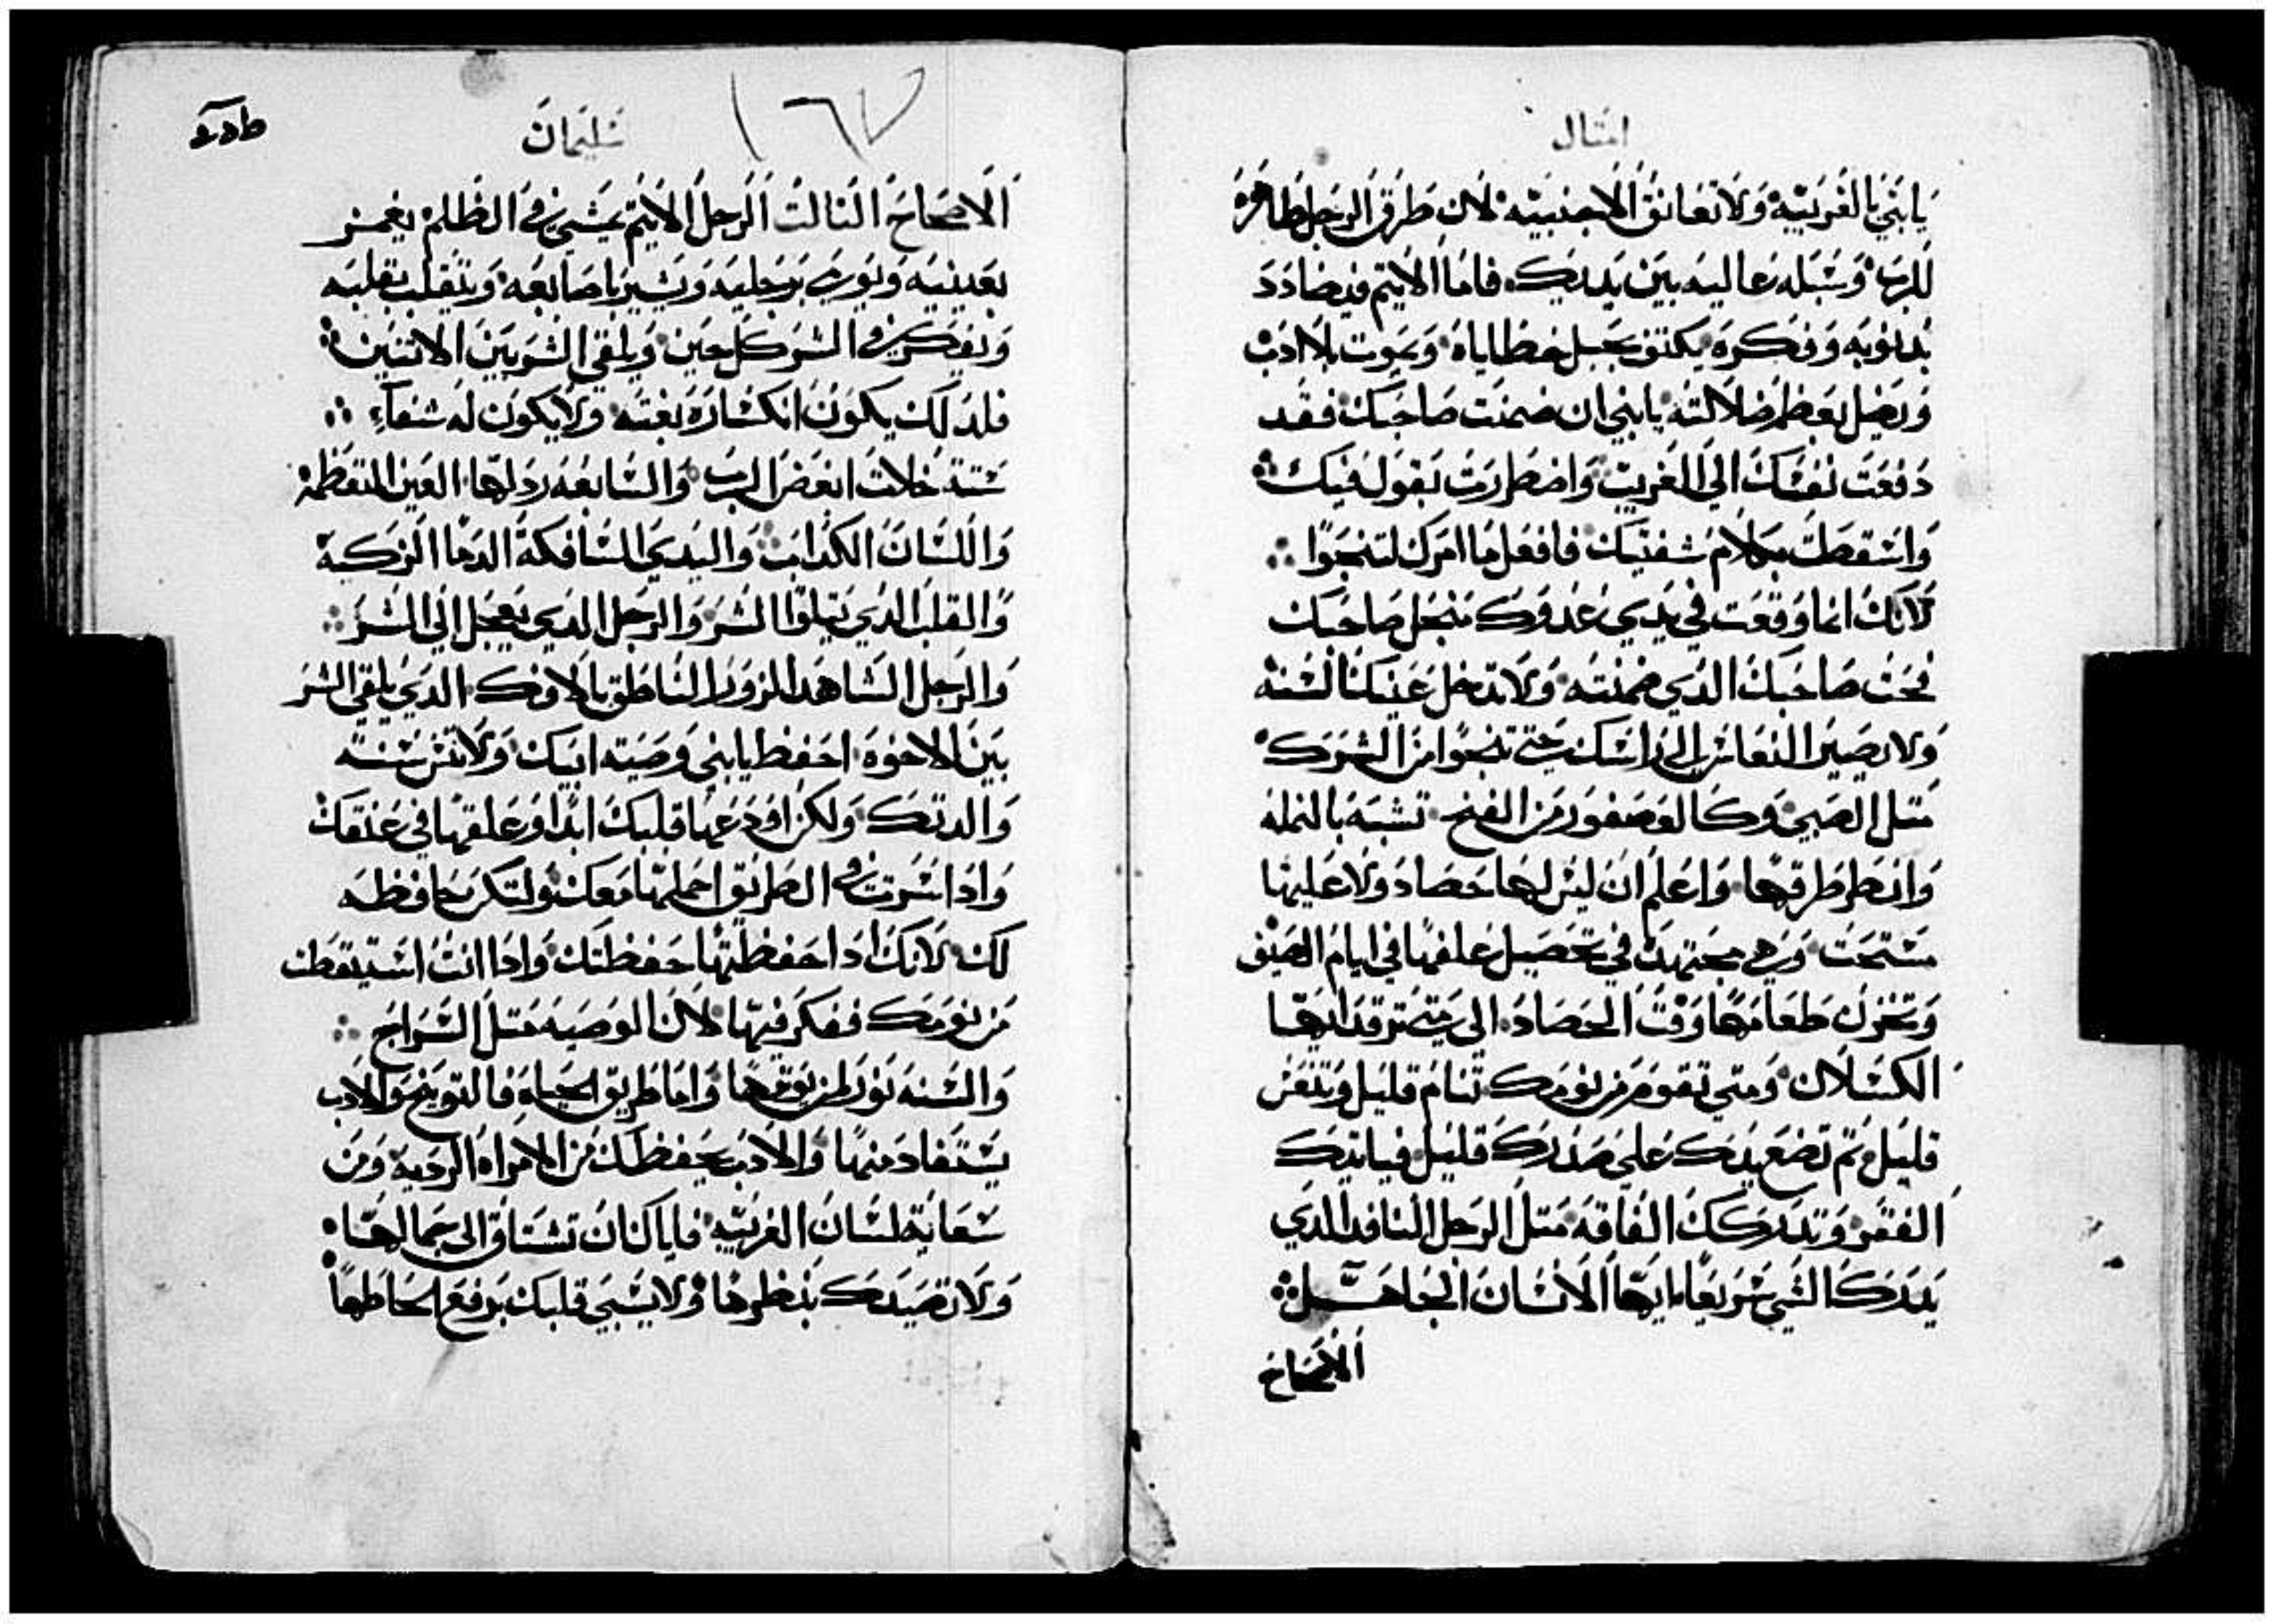 امتال
يا بني بالغريبه ولا تعانق الاجنبيه لان طرق الرجل ظاهره
للرب وسبله عاليه بين يديك فاما الاتيم فيضادد
بدنوبه وفكره يكتنف بحبل خطاياه ويموت بلا ادب
ويضل بعظم ضلالته يا بني ان ضمنت صاحبك فقد
دفعت نفسك الي الغريب واضطررت بقول فيك
واسقطت بكلام شفتيك فافعل ما امرك لتنجوا
لانك انما وقعت في يدي عدوك منجل صاحبك
فحت صاحبك الدي ضمنته ولا تدخل عينك السنه
ولا يصير النعاس الي راسك حتي تنجوا من الشرك
متل الصبي وكالعصفور من الفخ تشبه بالنمله
وانظر طرقها واعلم ان ليس لها حصاد ولا عليها
مستحت وهي مجتهده في تحصيل علفها في ايام الصيف
وتخزن طعامها وقت الحصاد الي متي ترقد ايها
الكسلان ومتي تقوم من نومك تنام قليل وتنعس
قليل تم تضع يدك علي صدرك قليل فياتيك
الفقر وتدركك الفاقه متل الرجل النافد الدي
يدرك الشي سريعا يا ايها الانسان الجاهل
الاصحاح
١٦٧
سليمان
الاصحاح التالت الرجل الاتيم يمشي في الظلم يغمز
بعينيه ويومي برجليه ويشير باصابعه ويتقلب بقلبه
ويفكر في الشر كل حين ويلقي الشر بين الاتنين
فلدلك يكون انكساره بغته ولا يكون له شفآء
ستة خلات ابغض الرب والسابعه ردلها العين المتعظمه
واللسان الكداب واليدي السافكة الدما الزكيه
والقلب الدي يتلوا الشر والرجل الدي يعجل الي الشر
والرجل الشاهد الزور الناطق بالافك الدي يلقي الشر
بين الاخوه احفظ يا بني وصيته ابيك ولا تنس سنته
والدتك ولكن اودعها قلبك ابدا وعلقها في عنقك
وادا سرت في الطريق احملها معك ولتكن حافظه
لك لانك ادا حفظتها حفظتك وادا انت استيقظت
من نومك ففكر فيها لان الوصيه متل السراج
والسنه نور لمن يوقرها واما طريق الحياه فالتوبيخ والادب
يستفاد منها والادب يحفظك من الامراه الرديه ومن
سعاية لسان الغريبه فاياك ان تشتاق الي جمالها
ولا تصيدك بنظرها ولا يسبي قلبك برفع لحاظها